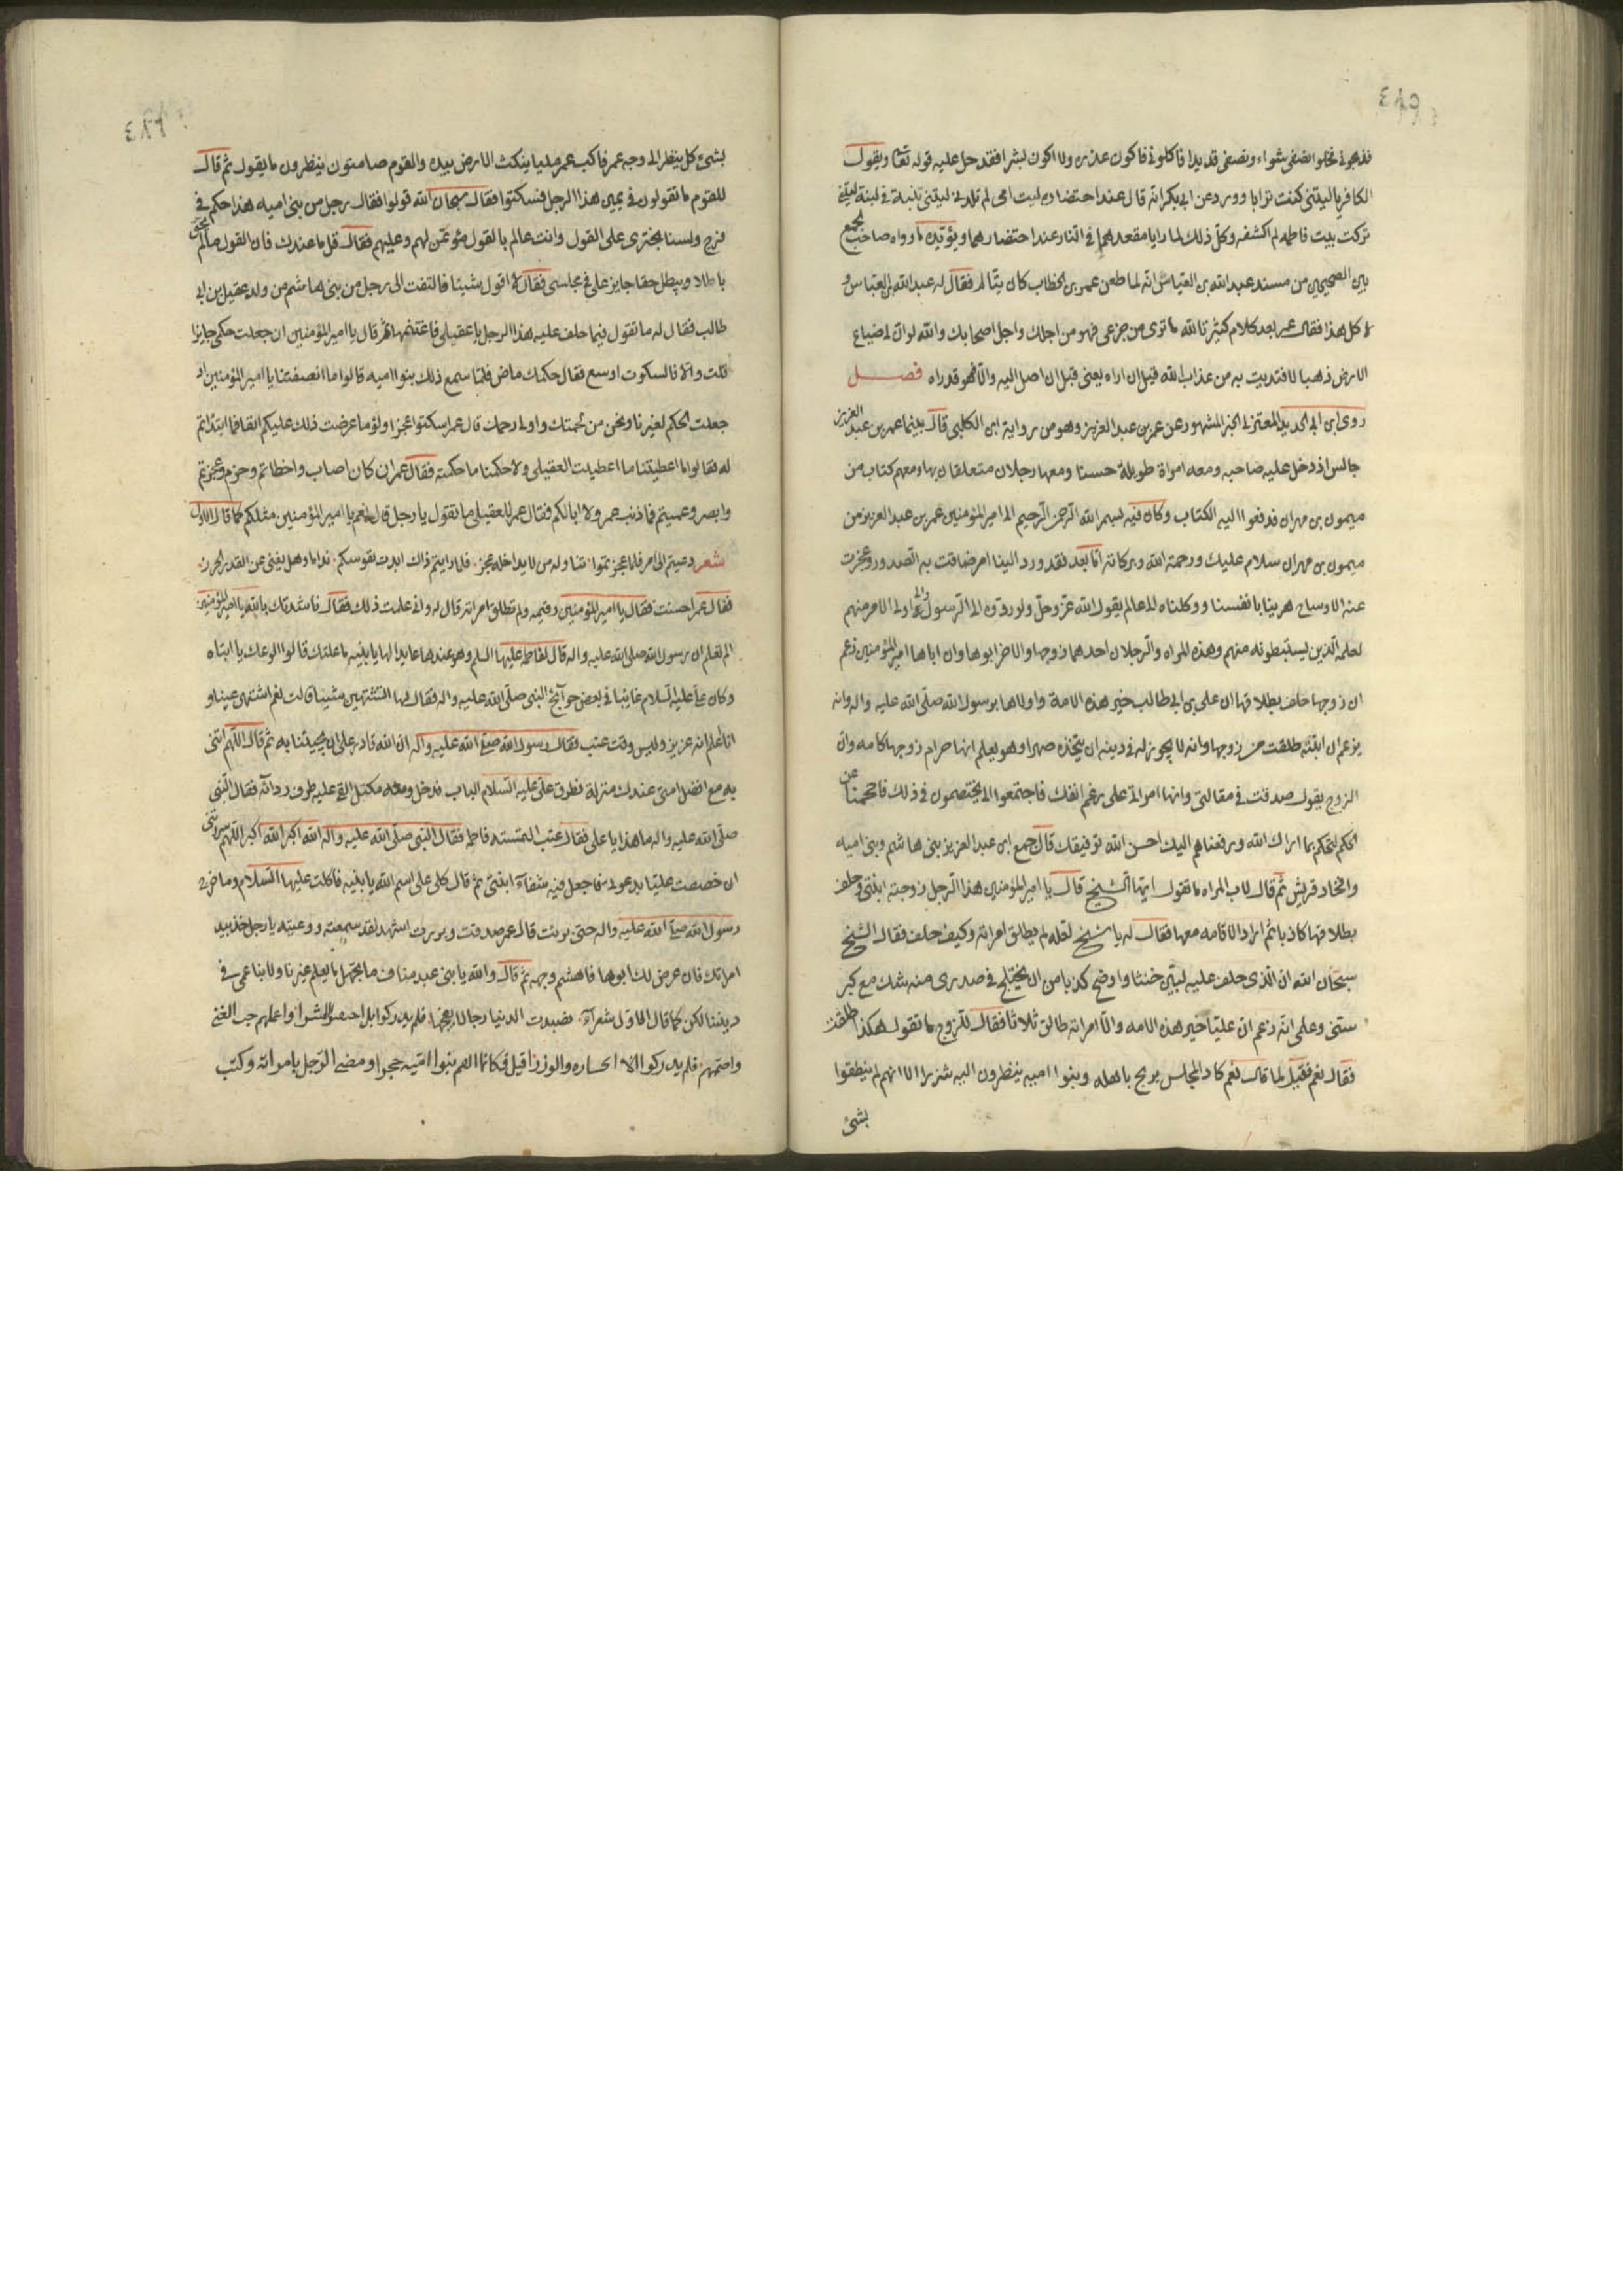 فذبحونى فجعلوا نصفى شواء ونصفى قديدا فاكلونى فاكون عذره ولا اكون بشرا فقد دخل عليه قوله تعالى ويقول
الكافر ياليتنى كنت ترابا وورد عن ابى بكر انه قال عند احتضاره ليت امى لم تلدنى ليتنى تبنة فى لبنة ليتنى
تركت بيت فاطمه لم اكشفه وكل ذلك لما رايا مقعدهما فى النار عند احتضارهما ويؤيده ما رواه صاحب الجمع
بين الصحيحين من مسند عبدالله بن العباس انه لما طعن عمر بن الخطاب كان يتالم فقال له عبدالله بن العباس و
لا كل هذا فقال عمر بعد كلام كثير تالله ما ترى من جزعى فهو من اجلك واجل اصحابك والله لو ان لى ضياع
الارض ذهبا لافتديت به من عذاب الله قبل ان اراه يعنى قبل ان اصل اليه والا فهو قد راه فصــل
روى ابن ابى الحديد المعتزلى الخبر المشهور عن عمر بن عبد العزيز وهو من رواية ابن الكلبى قال بينما عمر بن عبد العزيز
جالس اذ دخل عليه صاحبه ومعه امراة طويلة حسنا ومعها رجلان متعلقان بها ومعهم كتاب من
ميمون بن مهران فدفعوا اليه الكتاب وكان فيه بسم الله الرحمن الرحيم الى امير المؤمنين عمر بن عبد العزيز من
ميمون بن مهران سلام عليك ورحمة الله وبركاته اما بعد فقد ورد الينا امر ضاقت به الصدور وعجزت
عنه الاوساع هربنا بانفسنا ووكلناه الى عالم يقول الله عز وجل ولو ردوه الى الرسول والى اولى الامر منهم
لعلمه الذين يستنبطونه منهم وهذه المراه والرجلان احدهما زوجها والاخر ابوها وان اباها امير المؤمنين زعم
ان زوجها حلف بطلاقها ان على بن ابى طالب خير هذه الامة واولاها برسول الله صلى الله عليه واله وانه
يزعم ان ابنته طلقت من زوجها وانه لا يجوز له فى دينه ان يتخذه صهرا وهو يعلم انها حرام زوجها كامه وان
الزوج يقول صدقت فى مقالتى وانها امراتى على رغم انفك فاجتمعوا الى يختصمون فى ذلك فاحجمنا عن
الحكم لتحكم بما اراك الله ورفعناهم اليك احسن الله توفيقك قال جمع ابن عبد العزيز بنى هاشم وبنى اميه
وافخاد قريش ثم قال لاب المراه ما تقول ايها الشيخ قال يا امير المؤمنين هذا الرجل زوجته ابنتى وحلف
بطلاقها كاذبا ثم اراد الاقامه معها فقال له يا شيخ لعله لم يطلق امراته وكيف حلف فقال الشيخ
سبحان الله ان الذى حلف عليه لبين حنثا واوضح كذبا من ان يختلج فى صدرى منه شك مع كبر
سنى وعلمى انه زعم ان عليا خير هذه الامه والا امراته طالق ثلاثا فقال للزوج ما تقول هكذا حلفت
فقال نعم فقيل لما قال نعم كاد المجلس يرتج باهله وبنوا اميه ينظرون اليه شزرا الا انهم لم ينطقوا
بشئ
بشئ كل ينظر الى وجه عمر فاكب عمر مليا ينكث الارض بيده والقوم صامتون ينظرون ما يقول ثم قال
للقوم ما تقولون فى يمين هذا الرجل فسكتوا فقال سبحان الله قولوا فقال رجل من بنى اميه هذا حكم فى
فرج ولسنا نجترى على القول وانت عالم بالقول مؤتمن لهم وعليهم فقال قل ما عندك فان القول مالم يحق
باطلا ويبطل حقا جايز على فى مجلسى فقال لا اقول شيئا فالتفت الى رجل من بنى هاشم من ولد عقيل بن ابى
طالب فقال له ما تقول فيما حلف عليه هذا الرجل يا عقيلى فاغتنمها ثم قال يا امير المؤمنين ان جعلت حكمى جايزا
قلت والا فالسكوت اوسع فقال حكمك ماض فلما سمع ذلك بنوا اميه قالوا ما انصفتنا يا امير المؤمنين اذ
جعلت الحكم لغيرنا ونحن من لحمتك واولى رحمك قال عمر اسكتوا عجزا ولؤما عرضت ذلك عليكم انفا فما ابتدابتم
له فقالوا ما اعطيتنا ما اعطيت العقيلى ولا حكمتنا ما حكمته فقال عمر ان كان اصاب واخطاتم وحزم وعجزتم
وابصر وعميتم فما ذنب عمر ولا ابالكم فقال عمر للعقيلى ما تقول يا رجل قال نعم يا امير المؤمنين مثلكم كما قال الاول
شعر دعيتم الى امر فلما عجزتموا· تناوله من لا يداخله عجز· فلما رايتم ذاك ابدت نفوسكم· نداما وهل يغنى عن القدر الحرز·
فقال عمر احسنت فقال يا امير المؤمنين رقيمه ولم تطلق امراته قال له وانى علمت ذلك فقال ناشدتك بالله يا امير المؤمنين
الم تعلم ان رسول الله صلى الله عليه واله قال لفاطمه عليها السلم وهو عندها عايدا لها يا بنيه ما علتك قالوا الوعك يا ابتاه
وكان على عليه السلام غايبا فى بعض حوآيج النبى صلى الله عليه واله فقال لها اتشتهين شيئا قالت نعم اشتهى عنبا و
انا اعلم انه عزيز وليس وقت عنب فقال رسول الله صلى الله عليه واله ان الله قادر على ان يجيئنا به ثم قال اللهم ائتنى
به مع افضل امتى عندك منزلة فطرق على عليه السلام الباب فدخل ومعه مكتل القى عليه طرف ردائه فقال النبى
صلى الله عليه واله ما هذا يا على فقال عنب التمسته فاطمه فقال النبى صلى الله عليه واله الله اكبر الله اكبر اللهم سررتنى
ان خصصت عليا بدعوتى فاجعل فيه شفآء ابنتى ثم قال كلى على اسم الله يا بنيه فاكلت عليها السلام وما خرج
رسول الله صلى الله عليه واله حتى برئت قال عمر صدقت وبررت اشهد لقد سمعته ووعيته يا رجل خذ بيد
امراتك فان عرض لك ابوها فاهشم وجهه ثم قال والله يا بنى عبد مناف ما نجهل ما يعلم غيرنا ولا بنا عمى فى
ديننا لكن كما قال الاول شعرآء· تصيدت الدنيا رجالا بفخها· فلم يدركوا بل احتقبوا الشرا· واعماهم حب الغنى
واصمهم· فلم يدركوا الا الخساره والوزرا قيل فكانما القم بنوا اميه حجرا ومضى الرجل بامراته وكتب